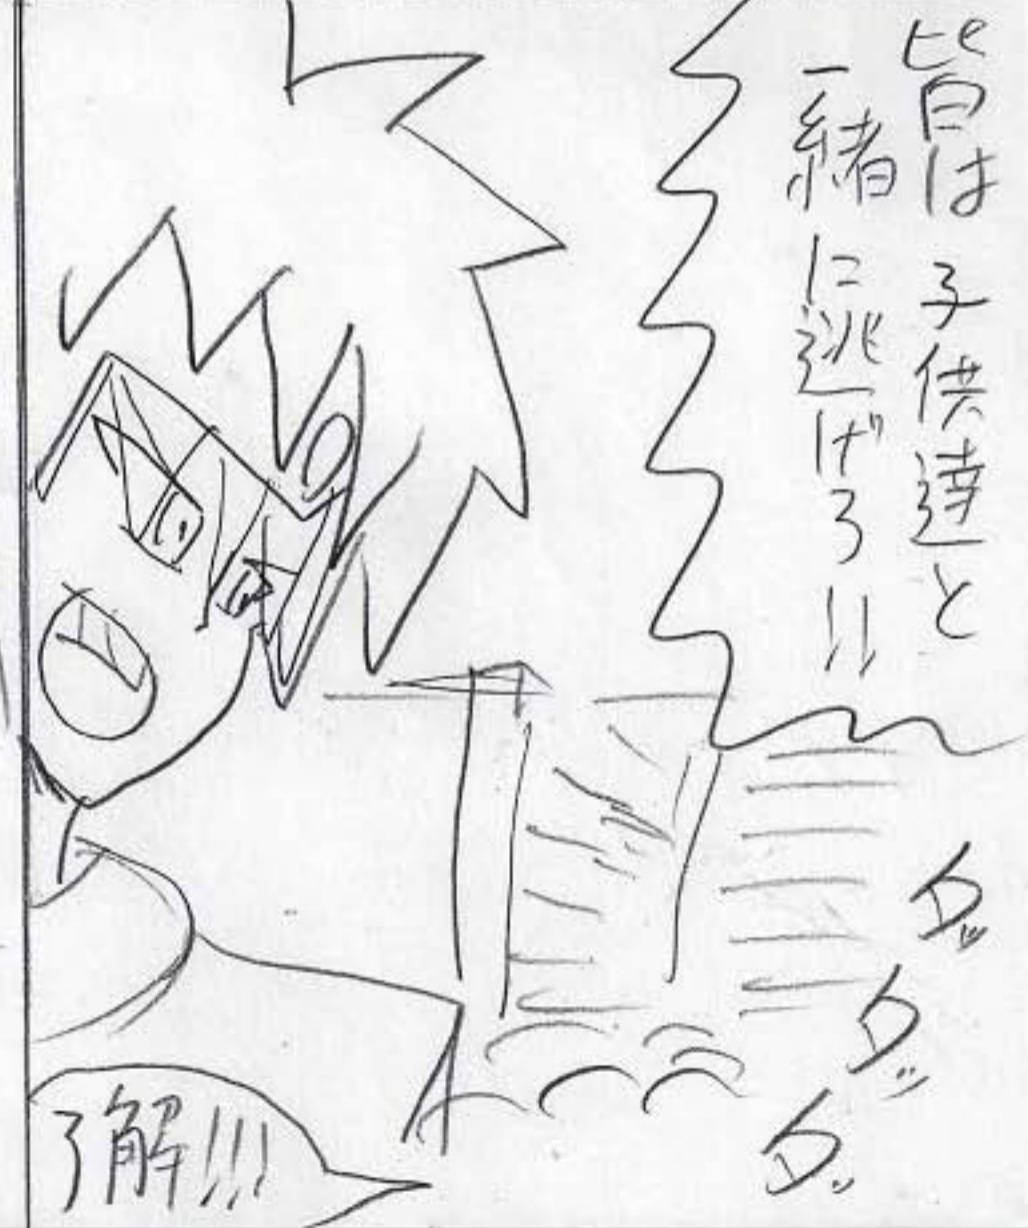 皆は子供達と
一緒に逃げろ!!
タッ
タッ
タッ
了解!!!